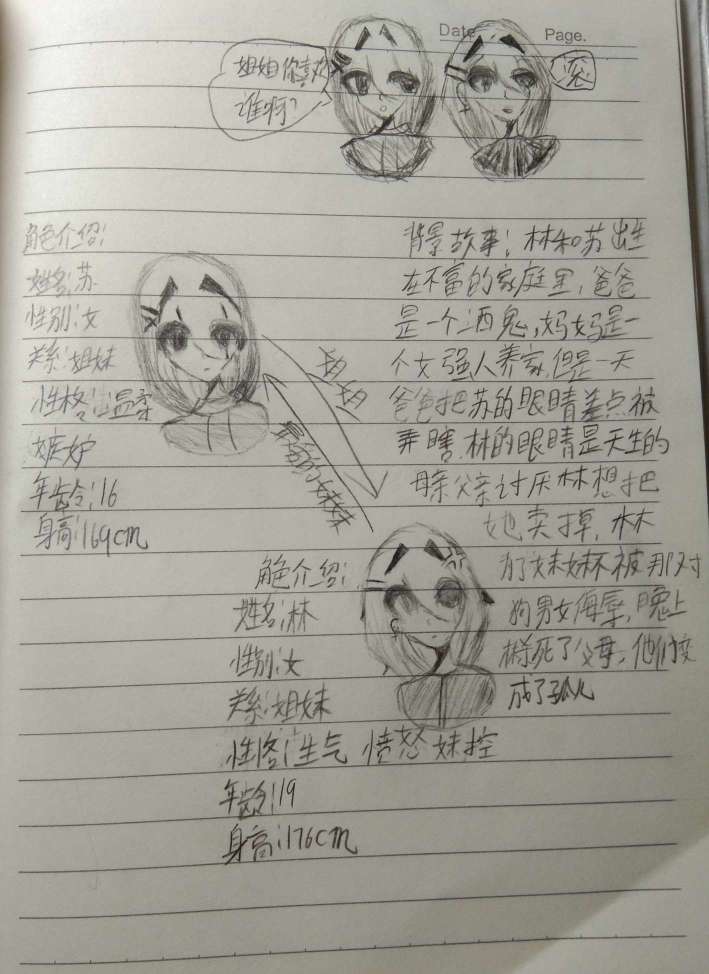 Date
Page.
姐姐你喜欢
谁啊?
滚
角色介绍:
姓名:苏
性别:女
关系:姐妹
性格:温柔
嫉妒
年龄:16
身高:169cm
背景故事:林和苏出生
在不富的家庭里,爸爸
是一个酒鬼,妈妈是一
个女强人养家,但是一天
爸爸把苏的眼睛差点被
弄瞎,林的眼睛是天生的
母亲父亲讨厌林想把
她卖掉,林
为了妹妹不被那对
狗男女侮辱,晚上
死了父母,他们变
成了孤儿
姐姐
最好的妹妹
角色介绍:
姓名:林
性别:女
关系:姐妹
性格:生气 愤怒 妹控
年龄:19
身高:176cm